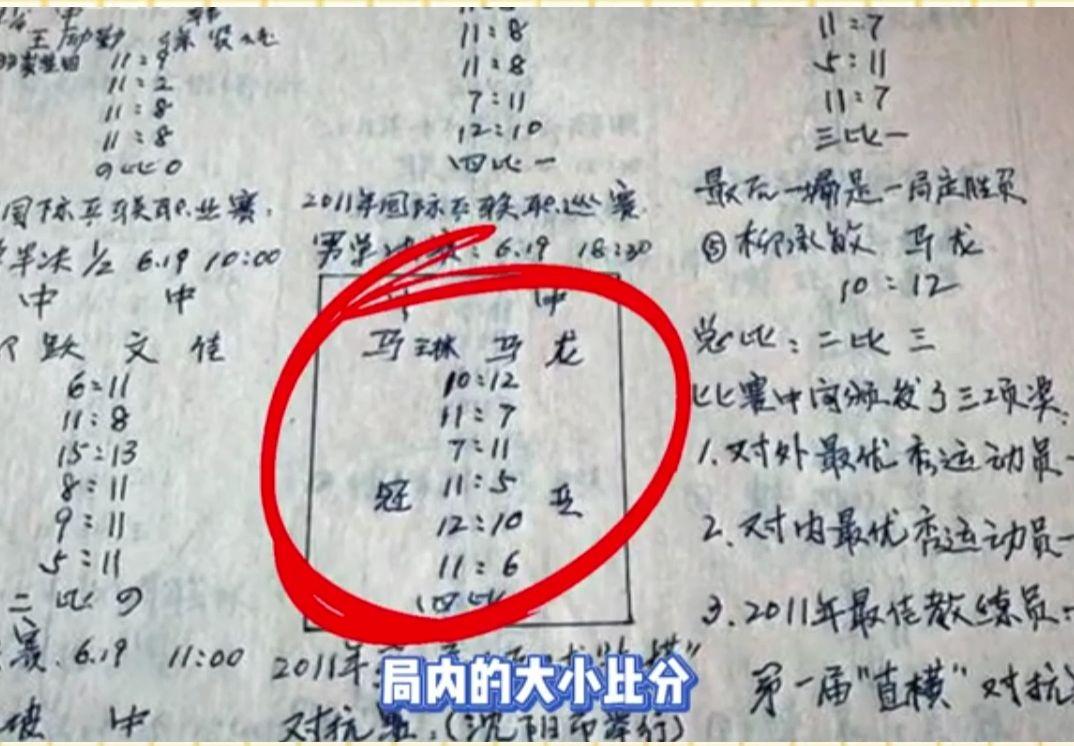 王励勤
11:9
11:2
11:8
11:8
四比0
国际乒联职业赛.
半决1/2 6.19 10:00
中 中
跃 文 佳
6:11
11:8
15:13
8:11
9:11
5:11
二比四
赛.6.19 11:00
中
11:8
11:8
7:11
12:10
四比一
2011年国际乒联职巡赛
男单决赛:6.19 18:30
中 中
马琳 马 龙
10:12
11:7
7:11
冠 11:5 亚
12:10
11:6
四比
2011年
对抗赛.(沈阳市举行)
11:7
5:11
11:7
三比一
最后一场是一局定胜负
⑤柳承敏 马龙
10:12
总比:二比三
比赛中间颁发了三项奖.
1.对外最优秀运动员
2.对内最优秀运动员
3.2011年最佳教练员
第一届"直横"对抗
局内的大小比分